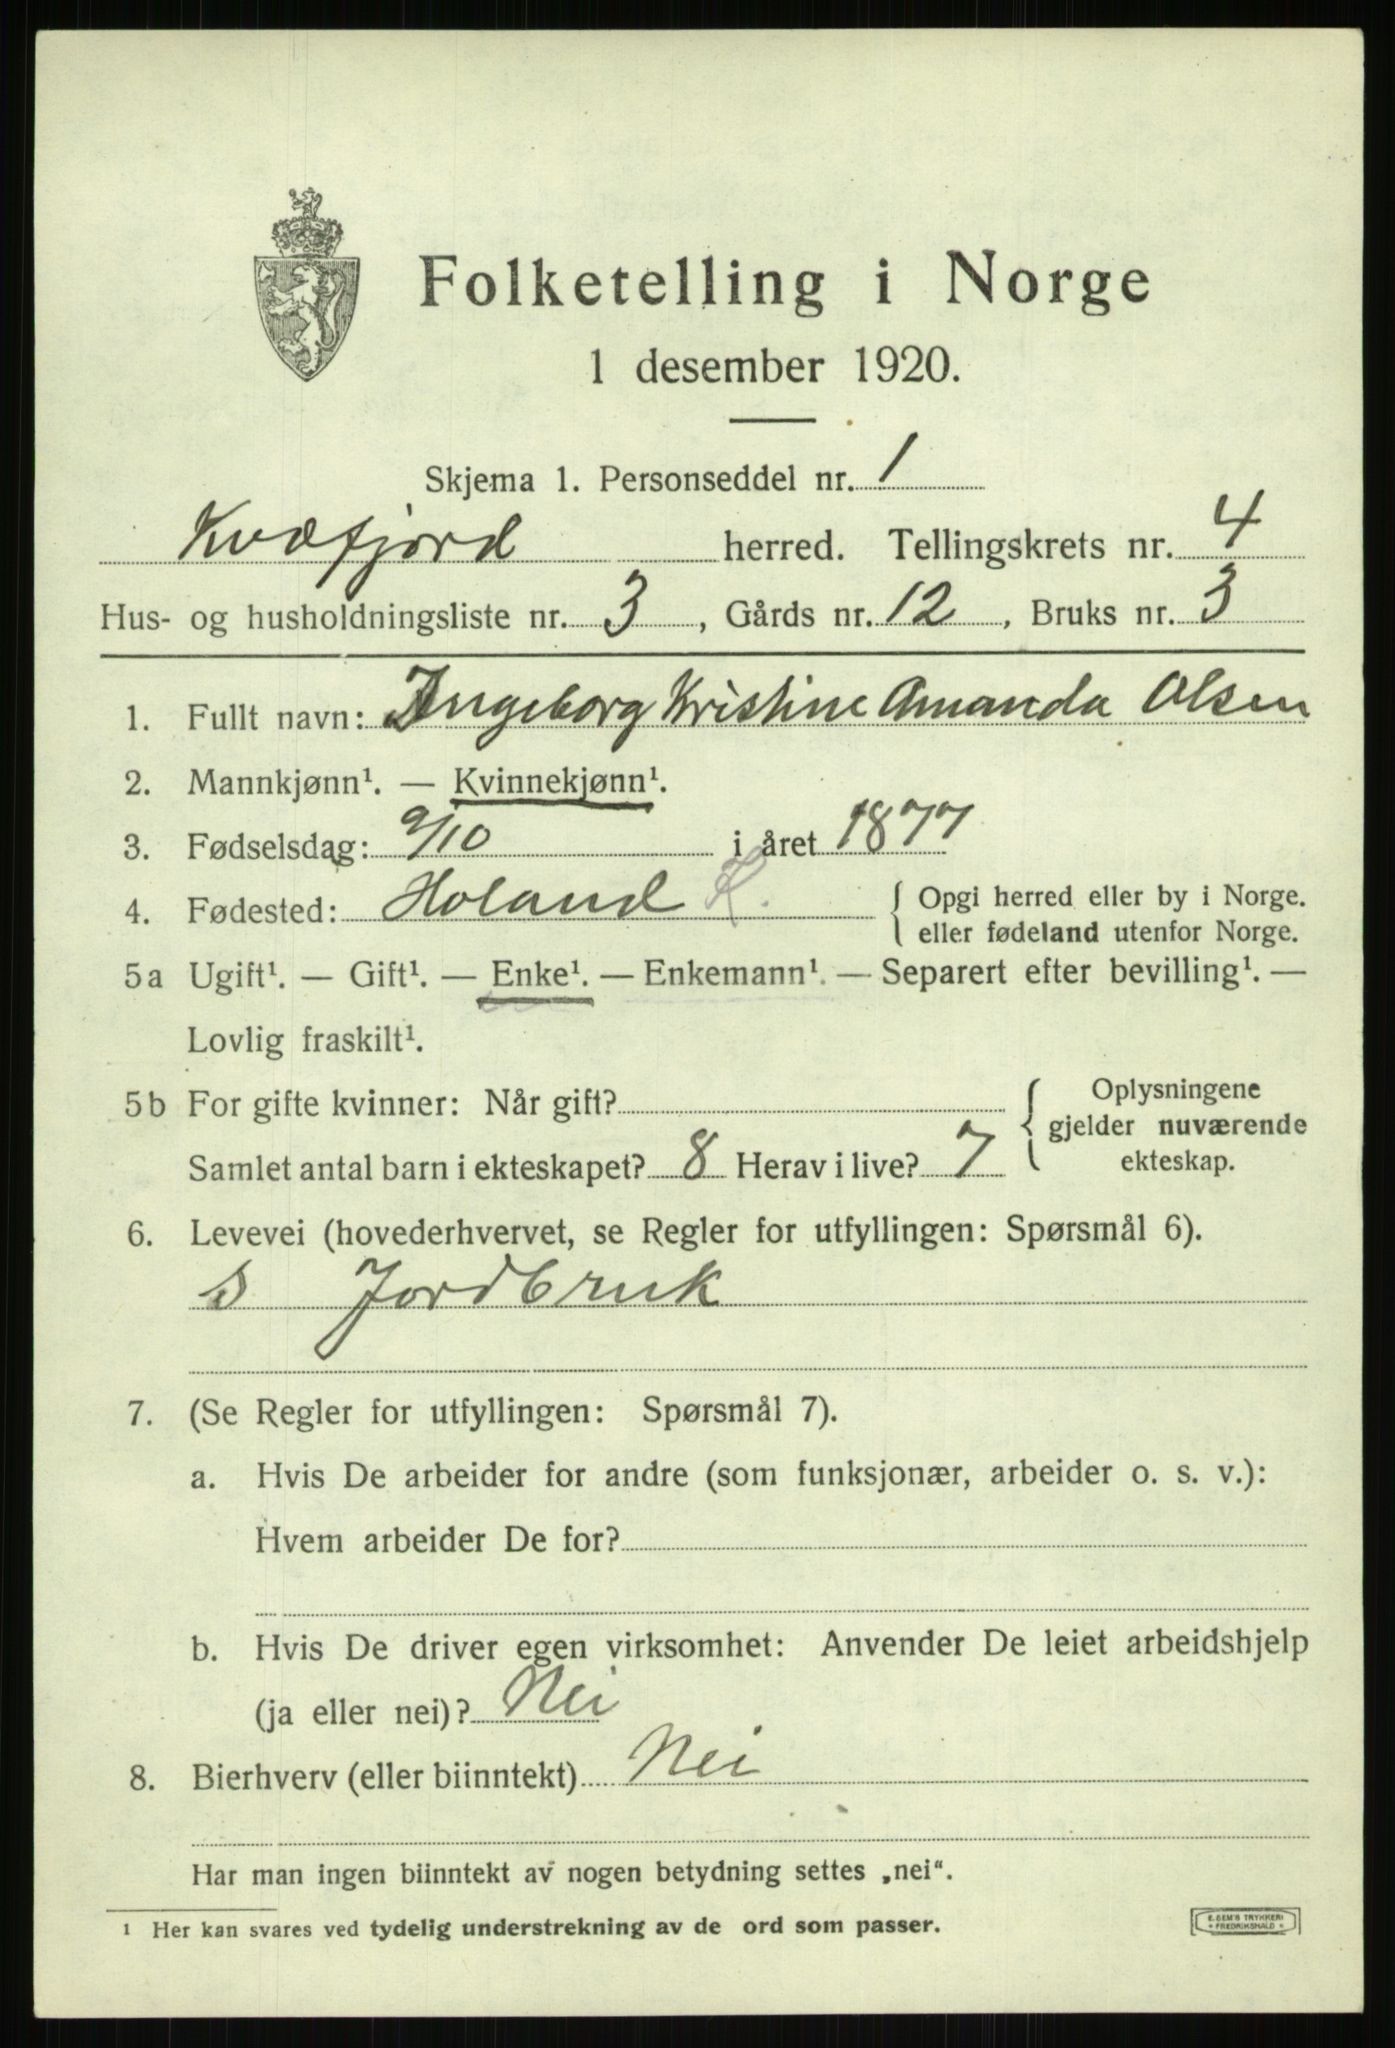 Folketelling i Norge
1 desember 1920.
Skjema 1. Personseddel nr. 1
Kvæfjord herred. Tellingskrets nr. 4
Hus- og husholdningsliste nr. 3, Gårds nr. 12, Bruks nr. 3
1. Fullt navn: Ingeborg Kristine Amanda Olsen
2. Mannkjønn¹. — Kvinnekjønn¹.
3. Fødselsdag: 9/10 i året 1877
4. Fødested: Holand K. { Opgi herred eller by i Norge.
eller fødeland utenfor Norge.
5a Ugift¹. — Gift¹. — Enke¹. — Enkemann¹. — Separert efter bevilling¹. —
Lovlig fraskilt¹.
5b For gifte kvinner: Når gift? { Oplysningene
gjelder nuværende
Samlet antal barn i ekteskapet? 8 Herav i live? 7 ekteskap.
6. Levevei (hovederhvervet, se Regler for utfyllingen: Spørsmål 6).
S Jordbruk
7. (Se Regler for utfyllingen: Spørsmål 7).
a. Hvis De arbeider for andre (som funksjonær, arbeider o. s. v.):
Hvem arbeider De for?
b. Hvis De driver egen virksomhet: Anvender De leiet arbeidshjelp
(ja eller nei)? Nei
8. Bierhverv (eller biinntekt) Nei
Har man ingen biinntekt av nogen betydning settes „nei“.
¹ Her kan svares ved tydelig understrekning av de ord som passer.
E. SEM'S TRYKKERI
* FREDRIKSHALD *